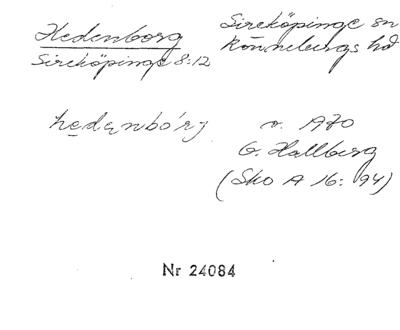 Hedenborg
Sireköpinge 8:12
Sireköpinge sn
Rönnebergs hd
hedenbórj
v. 1970
G. Hallberg
(Sko A 16: 94)
Nr 24084